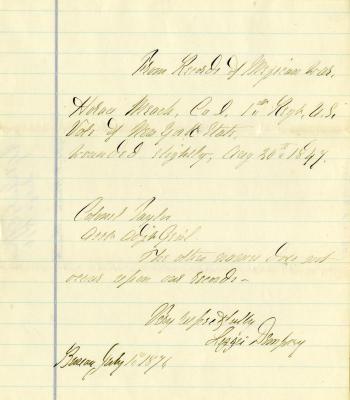 From Records of Mexican War.
Horace Co I, 1st Regt, U.S.
Vols of New York State
wounded slightly, Aug 20th 1847.
Colonel Taylor
Asst Adjt Genl
The other names does not
occur upon our records—
Very respectfully
Bureau, July 1st 1876